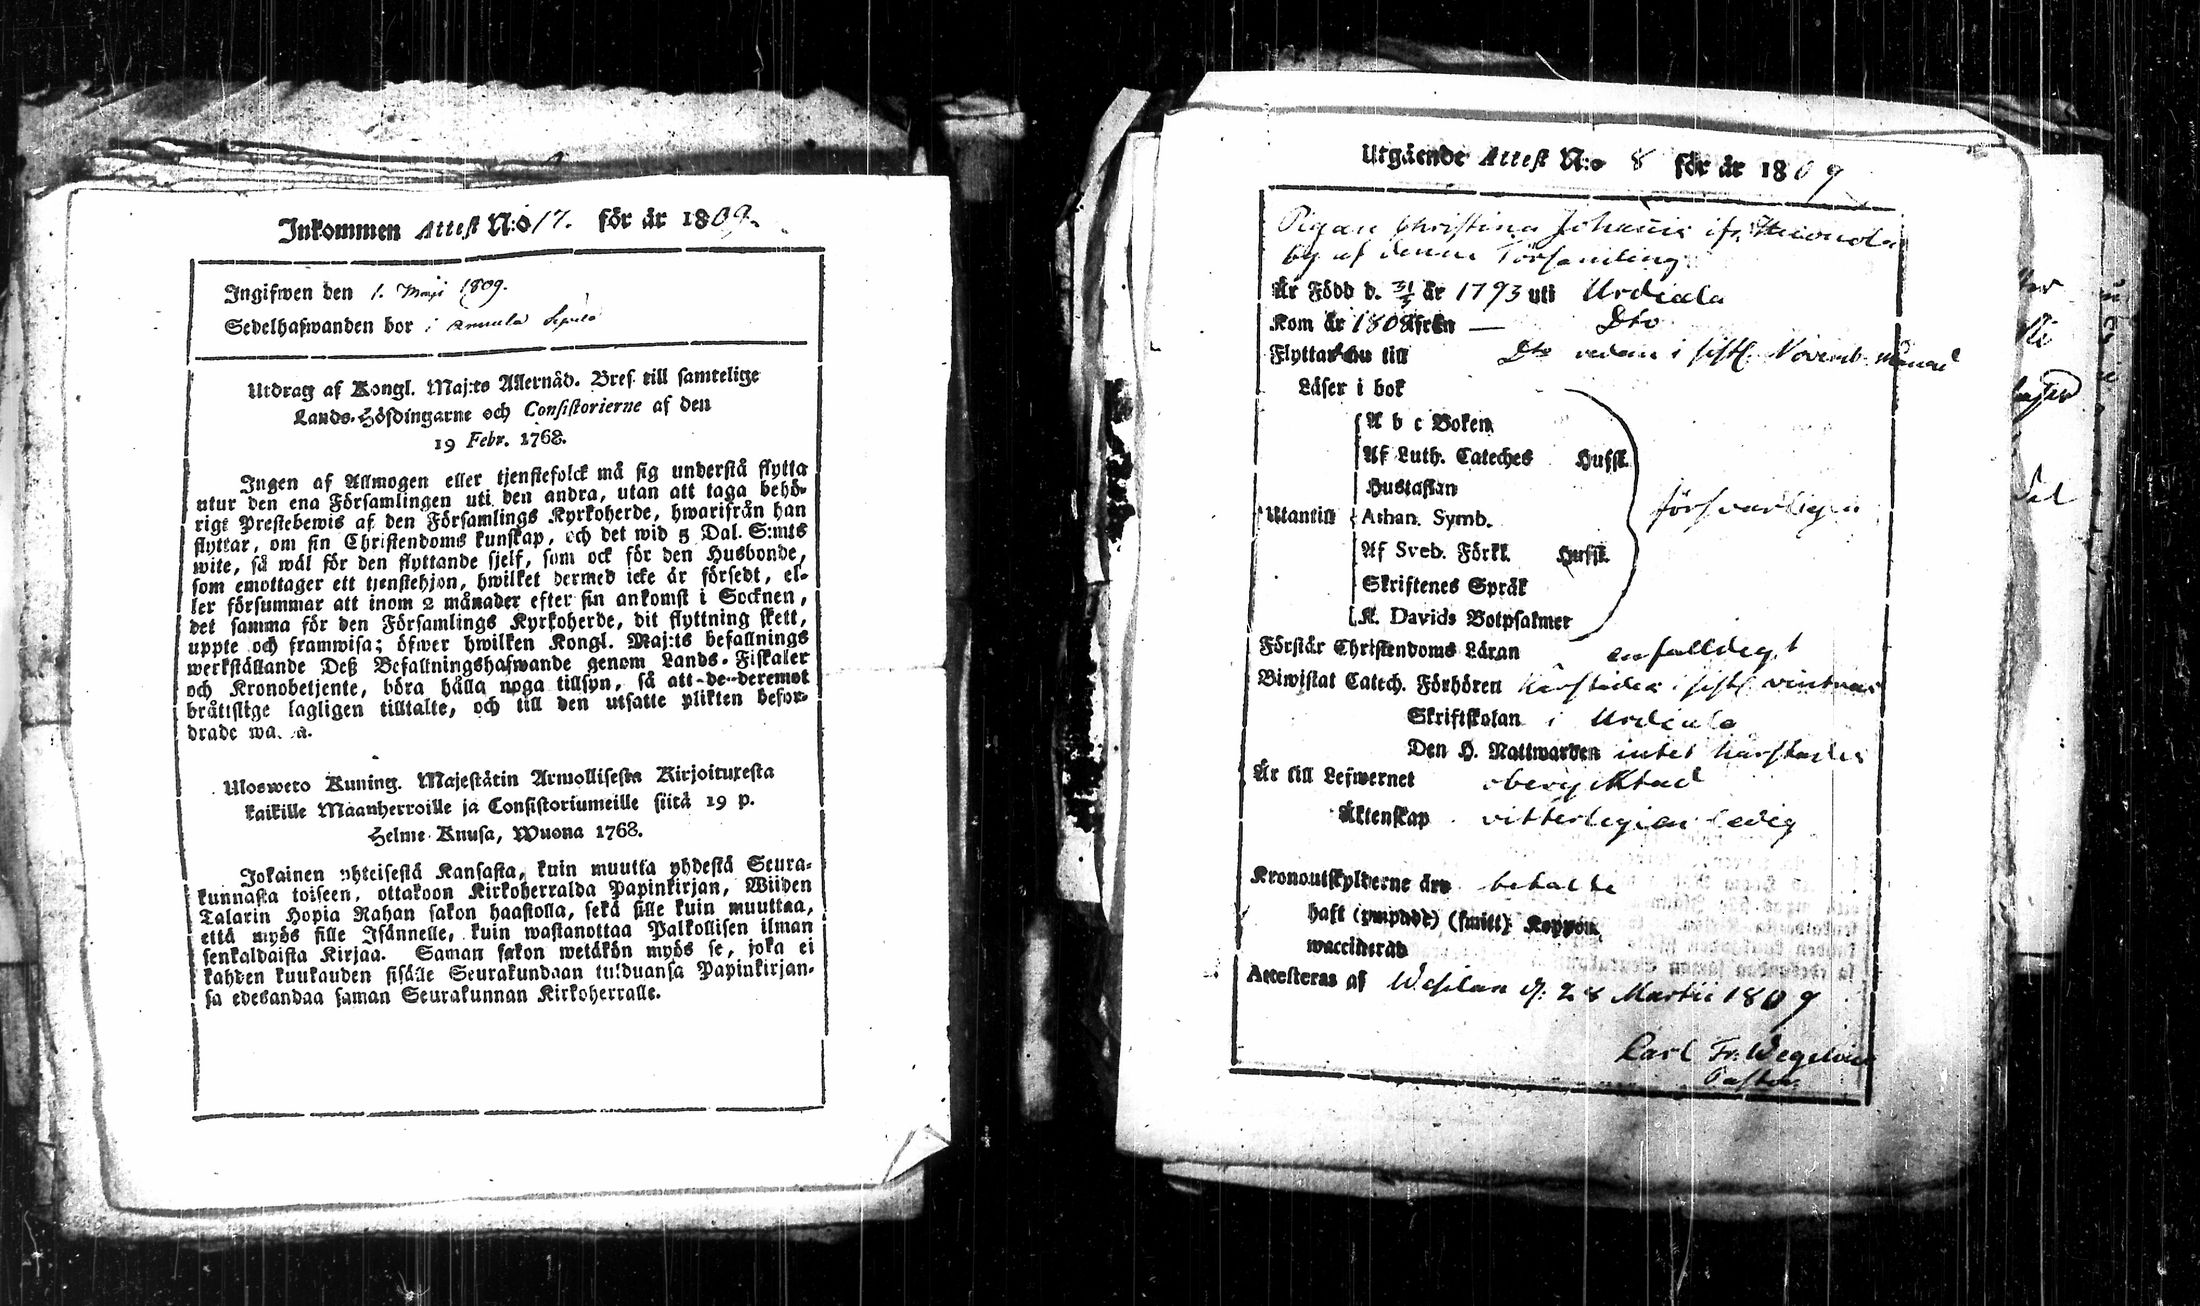 Inkommen Attest N:o 17. för år 1809.
Ingifwen den 1. Maji 1809.
Sedelhafwanden bor i
Utdrag af Kongl. Maj:ts Allernåd. Bref till samtelige
Lands-Höfdingarne och Consistorierne af den
19 Febr. 1768.
Ingen af Allmogen eller tjenstefolck må sig understå flytta
utur den ena Församlingen uti den andra, utan att taga behö-
rigt Prestebewis af den Församlings Kyrkoherde, hwarifrån han
flyttar, om sin Christendoms kunskap, och det wid 5 Dal. S:mts
wite, så wäl för den flyttande sjelf, som ock för den Husbonde,
som emottager ett tjenstehjon, hwilket dermed icke är försedt, el-
ler försummar att inom 2 månader efter sin ankomst i Socknen,
det samma för den Församlings Kyrkoherde, dit flyttning skett,
uppte och framwisa; öfwer hwilken Kongl. Maj:ts befallnings
werkställande Deß Befallningshafwande genom Lands-Fiskaler
och Kronobetjente, böra hålla noga tillsyn, så att de deremot
bråttslige lagligen tilltalte, och till den utsatte plikten befor-
drade wa. a.
Uloswero Kuning. Majestätin Armollisesta Kirjoituxesta
kaikille Maanherroille ja Consistoriumeille siitä 19 p.
Helme Kuusa, Wuona 1768.
Jokainen yhteisestä Kansasta, kuin muutta yhdestä Seura-
kunnasta toiseen, ottakoon Kirkoherralda Papinkirjan, Wiiden
Talarin Hopia Rahan sakon haastolla, sekä sille kuin muuttaa,
että myös sille Isännelle, kuin wastanottaa Palkollisen ilman
senkaldaista Kirjaa. Saman sakon wetäkön myös se, joka ei
kahden kuukauden sisälle Seurakundaan tulduansa Papinkirjan-
sa edesandaa saman Seurakunnan Kirkoherralle.
Utgående Attest N:o 8 för år 1809
Pigan Christina Johans ifr.
by af denne Församling
Är Född d. 31/5 år 1793 uti Urdiala
Kom år 1808 ifrån — Dto
Flyttar nu till Dto redan i sistl. Novemb. månad
Läser i bok
A b c Boken
Af Luth. Cateches Hufsl.
Hustaflan
Utantill Athan. Symb. försvarligen
Af Sveb. Förkl. Hufsl.
Skriftenes Språk
K. Davids Botpsalmer
Förstår Christendoms Läran enfalldigt
Biwistat Catech. Förhören härstädes i sistl. vintras
Skriftskolan i Urdiala
Den H. Nattwarden intet härstädes
Är till Lefwernet oberycktad
Äktenskap vitterligen ledig
Kronoutskylderne äro betalte
haft (ympade) (smitt) Koppor
waccinerad
Attesteras af Wesilax d. 28 Martii 1809
Carl Fr. Wegelius
Pastor